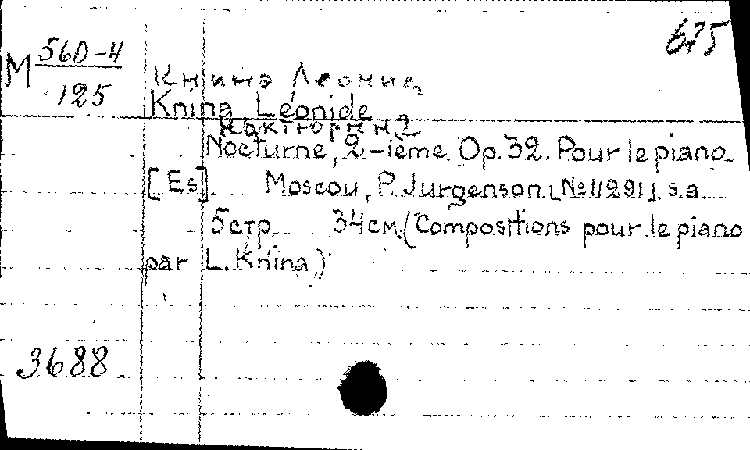 675
М 560-4
125
Книна Леонид
Knina Léonide
Ноктюрн н 2
Nocturne, 2-ième Op. 32. Pour le piano
[Es] Moscou, P. Jurgenson [№11291], s.a.
5 стр. 34 см. (Compositions pour le piano
par L. Knina)
3688